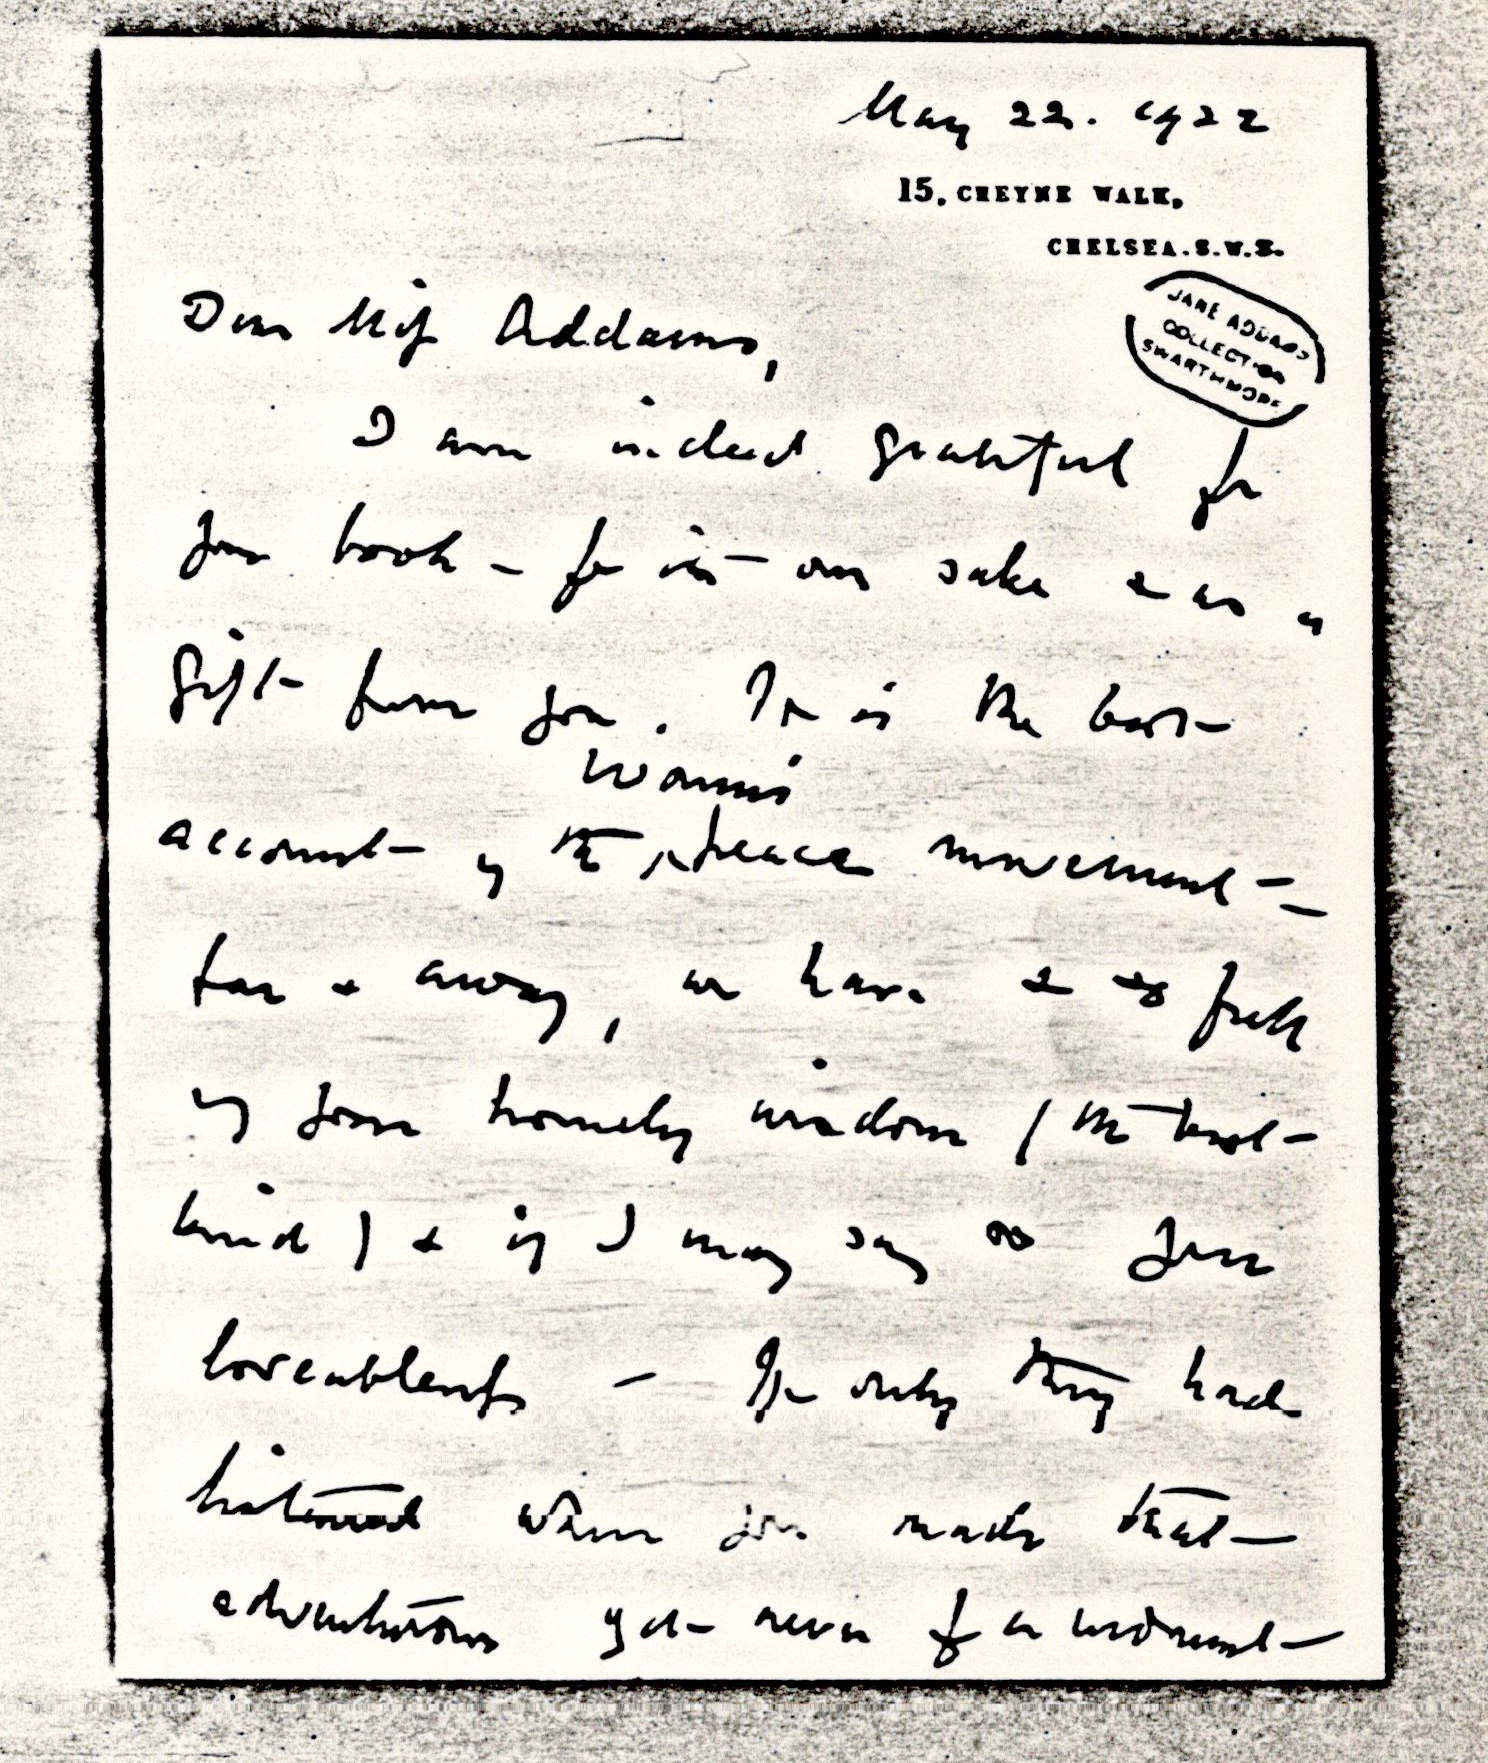 May 22. 1922
15, CHEYNE WALK,
CHELSEA. S.W.3.
JANE ADDAMS
COLLECTION
SWARTHMORE
Dear Miss Addams,
I am indeed grateful for
your book – for its own sake & as a
gift from you. It is the best
Women's
account of the peace movement –
far & away, we have & so full
of your homely wisdom / the best
kind / & if I may say so your
loveableness – If only they had
listened when you made that
adventurous yet never for a moment